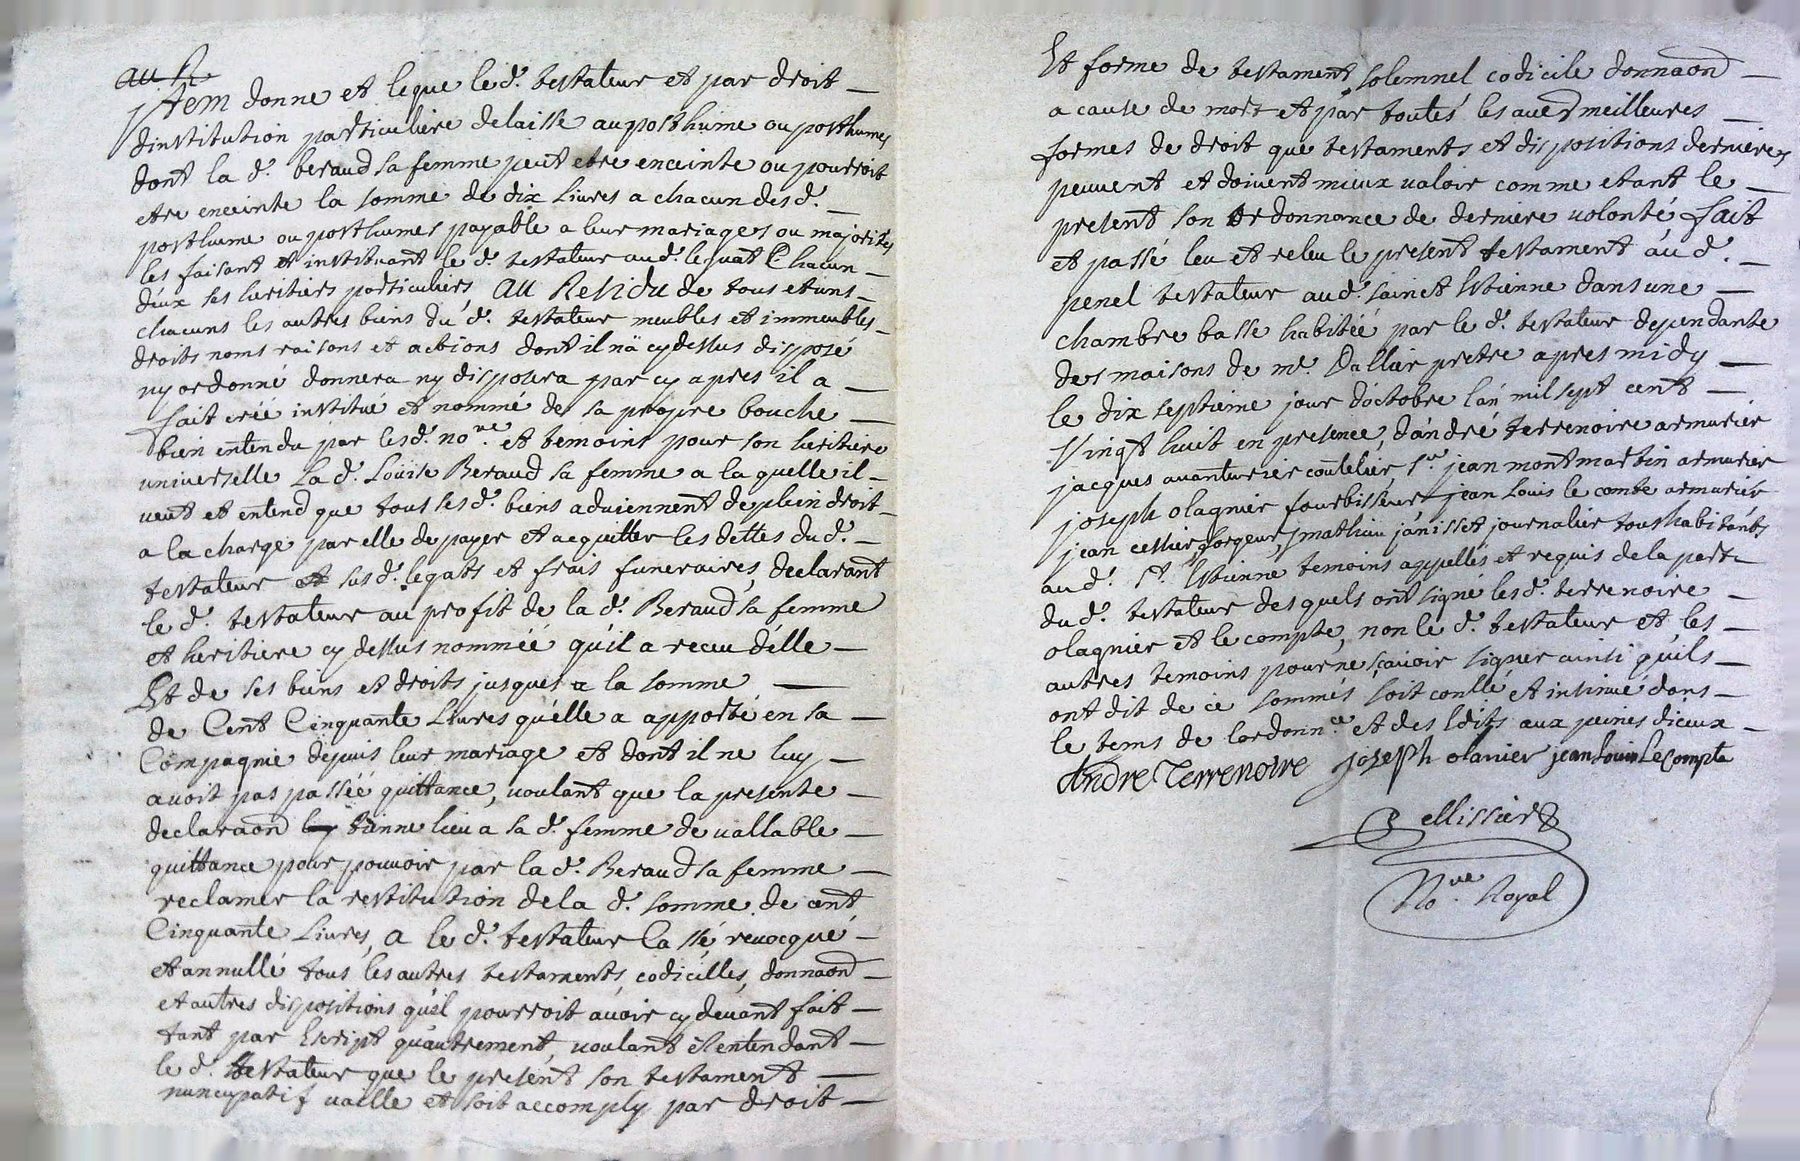 au R
Item donne et legue led. testateur et par droit
dinstitution particuliere delaisse au posthume ou posthumes
dont la d. beraud sa femme peut etre enceinte ou pourroit
etre enceinte la somme de dix Livres a chacun desd.
posthume ou posthumes payable a leur mariages ou majorités
les faisant et instituant le d. testateur aud. leguat Chacun
deux ses heritiers particuliers, au Residu de tous et uns
chacuns les autres biens du d. testateur meubles et immeubles
droits noms raisons et actions dont il nà cy dessus disposé
ny ordonné donnera ny disposera par cy apres il a
fait créé institué et nommé de sa propre bouche
bien entendu par lesd. no.re et temoins pour son heritiere
universelle La d. Louise Beraud sa femme a la quelle il
veut et entend que tous ses d. biens adviennent de plein droit
a la charge par elle de payer et acquitter les dettes du d.
testateur et susd. legats et frais funeraires, declarant
le d. testateur au profit de la d. Beraud sa femme
et heritiere cy dessus nommée qu'il a receu d'elle
Et de ses biens et droits jusques a la somme
de Cent Cinquante Livres qu'elle a apporté en sa
Compagnie depuis leur mariage et dont il ne luy
avoit pas passéé quittance, voulant que la presente
declaraon tienne lieu a sa d. femme de vallable
quittance pour pouvoir par la d. Beraud sa femme
reclamer la restitution de la d. somme de cent
Cinquante Livres, a le d. testateur Cassé revocque
et annullé tous les autres testaments, codicilles, donnaon
et autres dispositions qu'il pourroit avoir cy devant fait
tant par Escript qu'autrement, voulant et entendant
le d. testateur que le present son testament
nuncupatif vaille et soit accomply par droit
Et forme de testament solemnel codicile donnaon
a cause de mort et par toutes les aues meilleures
formes de droit que testaments et dispositions dernieres
peuvent et doivent mieux valoir comme etant le
present son Ordonnance de derniere volonté, fait
et passé leu et releu le present testament au d.
penel testateur aud. sainct Estienne dans une
chambre basse habitéé par le d. testateur dependante
des maisons de mr. Dallier pretre apres midy
le dix septieme jour d'octobre l'an mil sept cent
Vingt huit en presence, d'andré terrenoire armurier
jacques avanturier coutelier, Sr. jean montmartin armurier
joseph olagnier fourbisseur jean Louis le comte armurier
jean cellier forgeur, mathieu janisset journalier tous habitants
aud. St. Estienne temoins appellés et requis de la part
du d. testateur desquels ont signé lesd. terrenoire
olagnier et le compte, non le d. testateur et les
autres temoins pour ne sçavoir signer ainsi qu'ils
ont dit de ce sommés soit conllé et insinué dans
le tems de lordonn.ce et des Edits aux peines d'iceux
André Terrenoire joseph olanier jean Louis Le Compte
Pellissier
No.re Royal